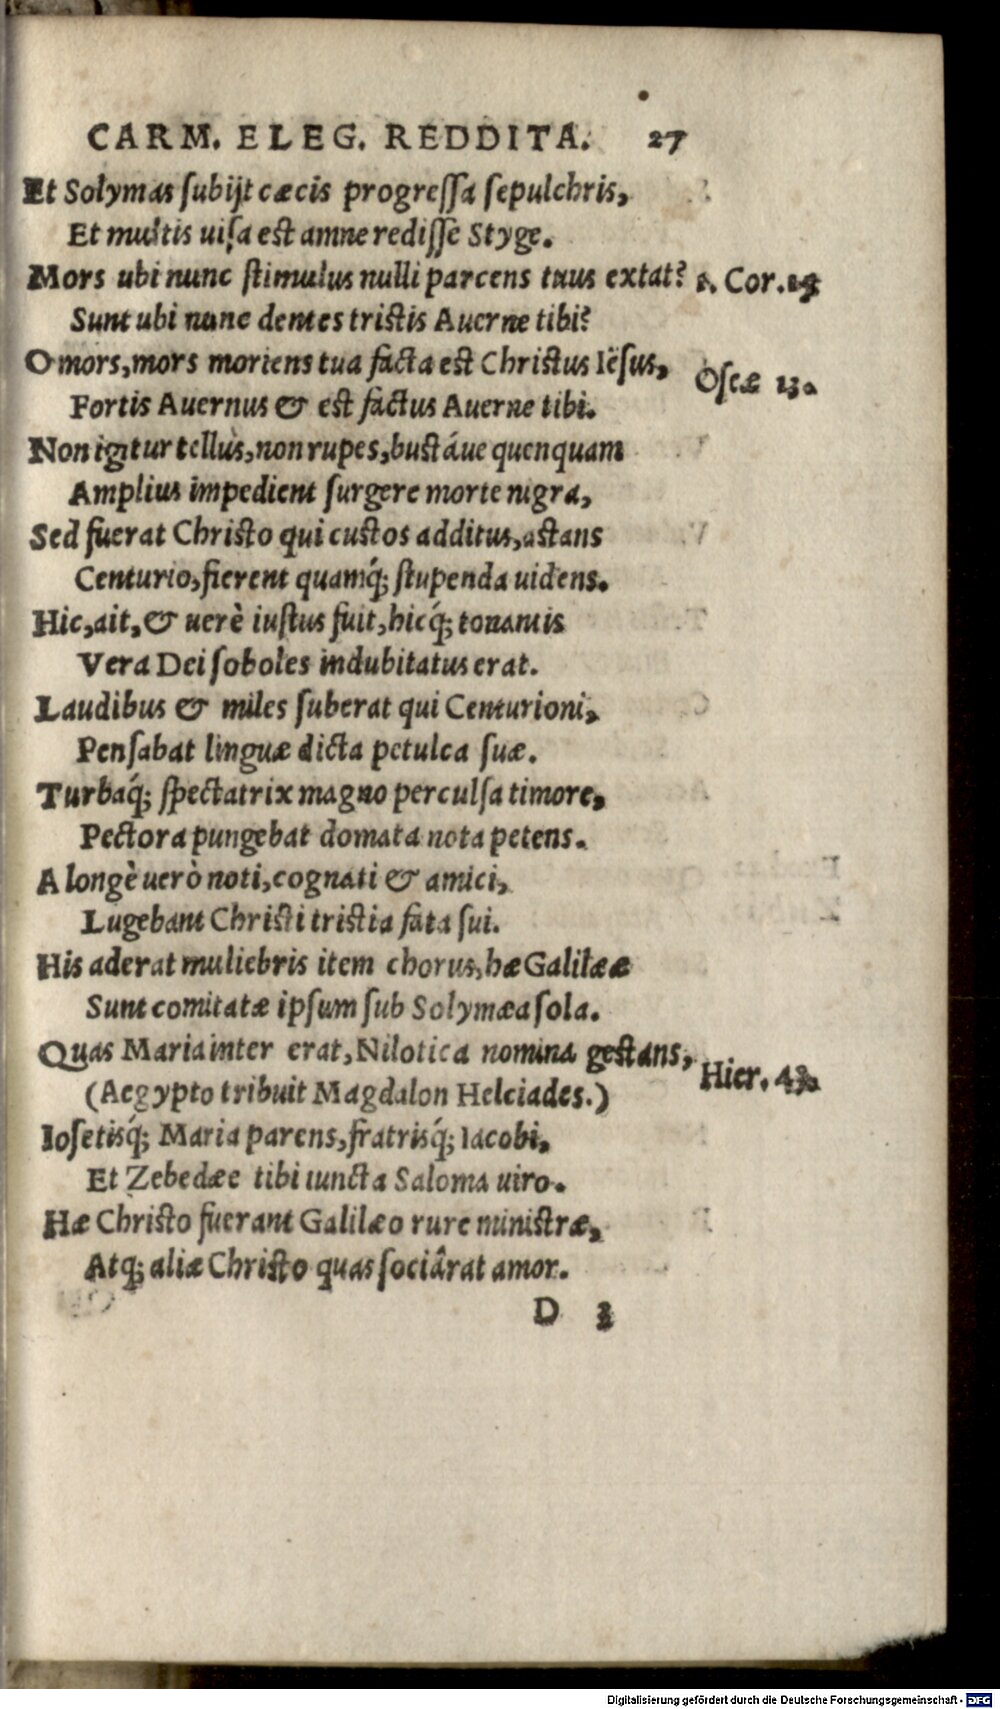 CARM. ELEG. REDDITA. 27
Et Solymas subijt cæcis progressa sepulchris,
Et multis uisa est amne redisse Styge.
Mors ubi nunc stimulus nulli parcens tuus extat? 1. Cor. 15
Sunt ubi nunc dentes tristis Auerne tibi?
O mors, mors moriens tua facta est Christus Iësus, Oseæ 13.
Fortis Auernus & est factus Auerne tibi.
Non igitur tellus, non rupes, bustáue quenquam
Amplius impedient surgere morte nigra,
Sed fuerat Christo qui custos additus, astans
Centurio, fierent quamq́; stupenda uidens.
Hic, ait, & uerè iustus fuit, hicq́; tonantis
Vera Dei soboles indubitatus erat.
Laudibus & miles suberat qui Centurioni,
Pensabat linguæ dicta petulca suæ.
Turbaq́; spectatrix magno perculsa timore,
Pectora pungebat domata nota petens.
A longè uerò noti, cognati & amici,
Lugebant Christi tristia fata sui.
His aderat muliebris item chorus, hæ Galilææ
Sunt comitatæ ipsum sub Solymæa sola.
Quas Maria inter erat, Nilotica nomina gestans,
(Aegypto tribuit Magdalon Helciades.) Hier. 43.
Iosetisq́; Maria parens, fratrisq́; Iacobi,
Et Zebedæe tibi iuncta Saloma uiro.
Hæ Christo fuerant Galilæo rure ministræ,
Atq; aliæ Christo quas sociârat amor.
D 2
Digitalisierung gefördert durch die Deutsche Forschungsgemeinschaft - DFG